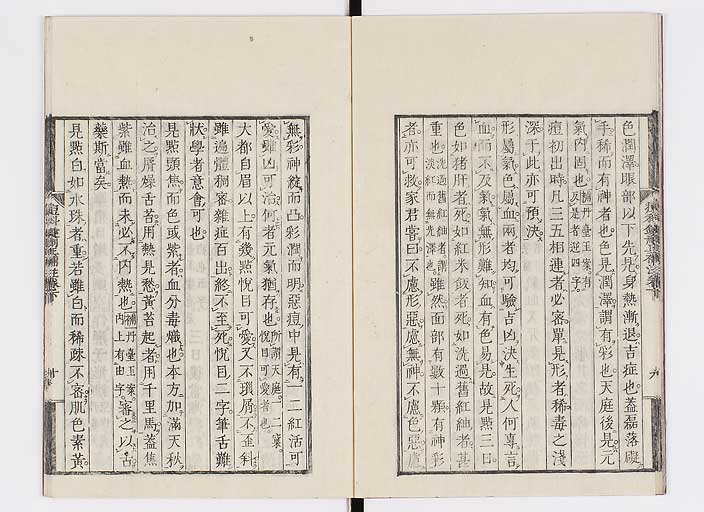 色潤澤眼部以下先見身熱漸退吉症也蓋磊落礙
手稀而有神者也色見潤澤謂有彩也天庭後見元
氣內固也補丹臺玉案有及是者逆四字
痘初出時凡三五相連者必密單見形者稀毒之淺
深于此亦可預決
形屬氣色屬血兩者均可驗占凶決生死人何專言
血而不及氣氣無形難知血有色易見故見點三日
色如猪肝者死如紅米飯者死如洗過舊紅紬者甚
重也洗過舊紅紬者謂淡紅而無光澤也雖然面部有數十顆有神彩
者亦可救家君嘗曰不慮形惡慮無神不慮色惡慮
無彩神綻而凸彩潤而明惡痘中見有一二紅活可
愛雖凶可治何者元氣猶存也所謂天庭一二窠悅目可愛者也
大都自眉以上有幾點悅目可愛又不瑣屑不歪斜
雖遍體稠密雜症百出終不至死悅目二字筆舌難
狀學者意會可也
見點頭焦而色或紫者血分毒熾也本方加滿天秋
治之屑燥舌苔用熱見愁黃苔起者用千里馬蓋焦
紫雖血熱而未必不內熱也補丹臺玉案內上有由字審之以舌
藥斯當矣
見點白如水珠者重若雖白而稀疎不密肌色素黃